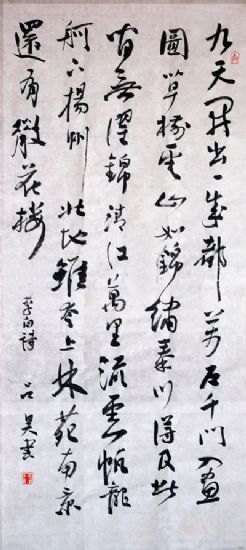 九天開出一成都萬戶千門入畫
圖草樹雲山如錦繡秦川得及此
間無濯錦清江萬里流雲帆龍
舸下揚州北地雖夸上林苑南京
還有散花樓
李白詩